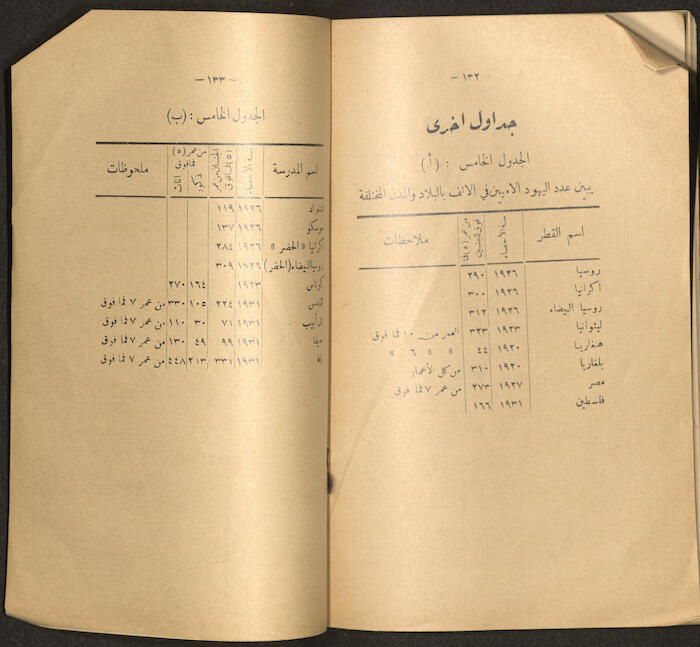 — ١٣٢ —
جداول اخرى
الجدول الخامس : (أ)
يبين عدد اليهود الاميين في الالف بالبلاد والمدن المختلفة
اسم القطر سنة الاحصاء من عمر (٥) فما فوق الجنسين ملاحظات
روسيا ١٩٢٦ ٢٩٠
اكرانيا ١٩٢٦ ٣٠٠
روسيا البيضاء ١٩٢٦ ٣١٢
ليثوانيا ١٩٢٣ ٣٢٣ العمر من ١٠ فما فوق
هنغاريا ١٩٢٠ ٤٤ » » ٦ »
بلغاريا ١٩٢٠ ٣١٠ من كل الأعمار
مصر ١٩٢٧ ٢٧٣ من عمر ٧ فما فوق
فلسطين ١٩٣١ ١٦٦
— ١٣٣ —
الجدول الخامس : (ب)
اسم المدرسة سنة الاحصاء الجنسان من عمر (٥) فما فوق من عمر (٥) فما فوق ذكور اناث ملحوظات
لننغراد ١٩٢٦ ١١٩
موسكو ١٩٢٦ ١٣٧
كرانيا « الحضر » ١٩٢٦ ٢٨٤
روسيا البيضاء (الحضر) ١٩٢٦ ٣٠٩
كوناس ١٩٢٣ ١٦٤ ٢٧٠
القدس ١٩٣١ ٢٢٤ ١٠٥ ٣٣٠ من عمر ٧ فما فوق
تل أبيب ١٩٣١ ٧١ ٣٠ ١١٠ من عمر ٧ فما فوق
حيفا ١٩٣١ ٩٩ ٤٩ ١٣٠ من عمر ٧ فما فوق
افا ١٩٣١ ٣٣١ ٢١٣ ٤٤٨ من عمر ٧ فما فوق